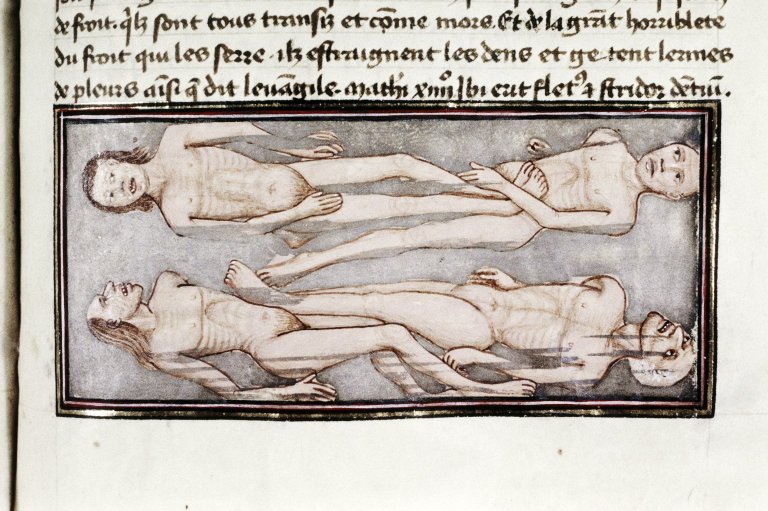 de froit. q̄lz sont tous transiz et cōme mors. Et de la grāt horriblete
du froit qui les serre. ilz estraignent les dens et gectent lermes
de pleurs aīsi q̄ dit leuāgile. Mathi xiiijº Ibi erit flet⁹ ⁊ stridor dētiū.